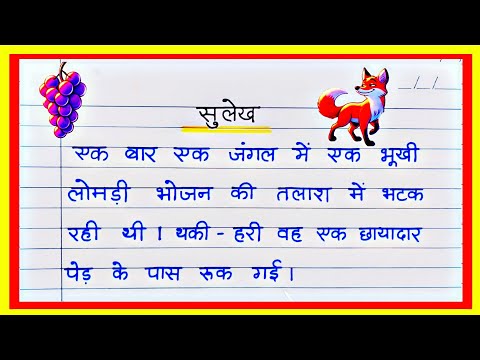 सुलेख
एक बार एक जंगल में एक भूखी
लोमड़ी भोजन की तलारा में भटक
रही थी । थकी - हरी वह एक छायादार
पेड़ के पास रूक गई।